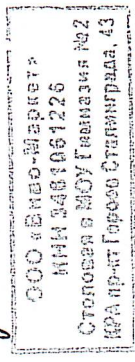 ООО «Виво-Маркет»
ИНН 3461061226
Столовая в МОУ Гимназия №2
КРА пр-кт Героев Сталинграда, 43